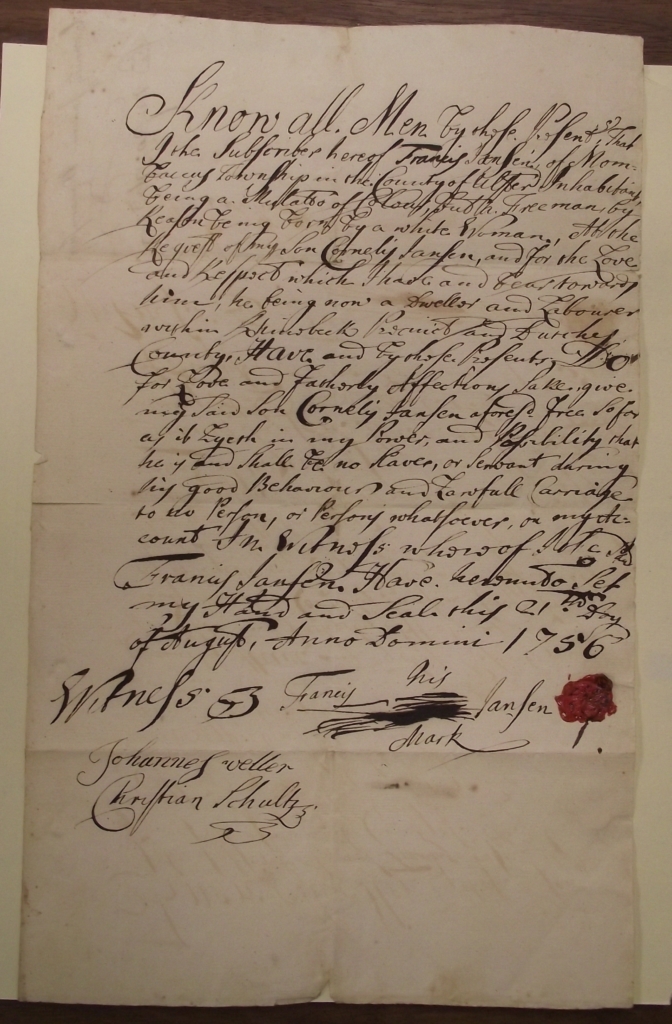 Know all. Men by these. Presents, That
I the Subscriber hereof Francis Jansen, of Mom-
baccus Township in the County of Ulster Inhabitant,
being a. Mulatto of Colour, but a. Freeman, by
Reason being born by a white Woman, At the
Request of my Son Cornelis Jansen, and for the Love
and Respect which I have and bear towards
him, he being now a Dweller and Labourer
within Rhinebeck Precinct and Dutches
County, Have and by these Presents. Do
for Love and Fatherly Affections Sake, give.
my Said Son Cornelis Jansen afores.d Free So far
as it Lyeth in my Power, and Possibility that
he is and Shall be no Slaver, or Servant during
his good Behaviour and Lawfull Carriage
to no Person, or Persons whatsoever, on my Ac-
count In Witness whereof I the Sd
Francis Jansen. Have. hereunto Set
my Hand and Seal this 21th Day
of August, Anno Domini 1756
Witness. Francis his Jansen
Mark
Johannes weller
Christian Schultz.